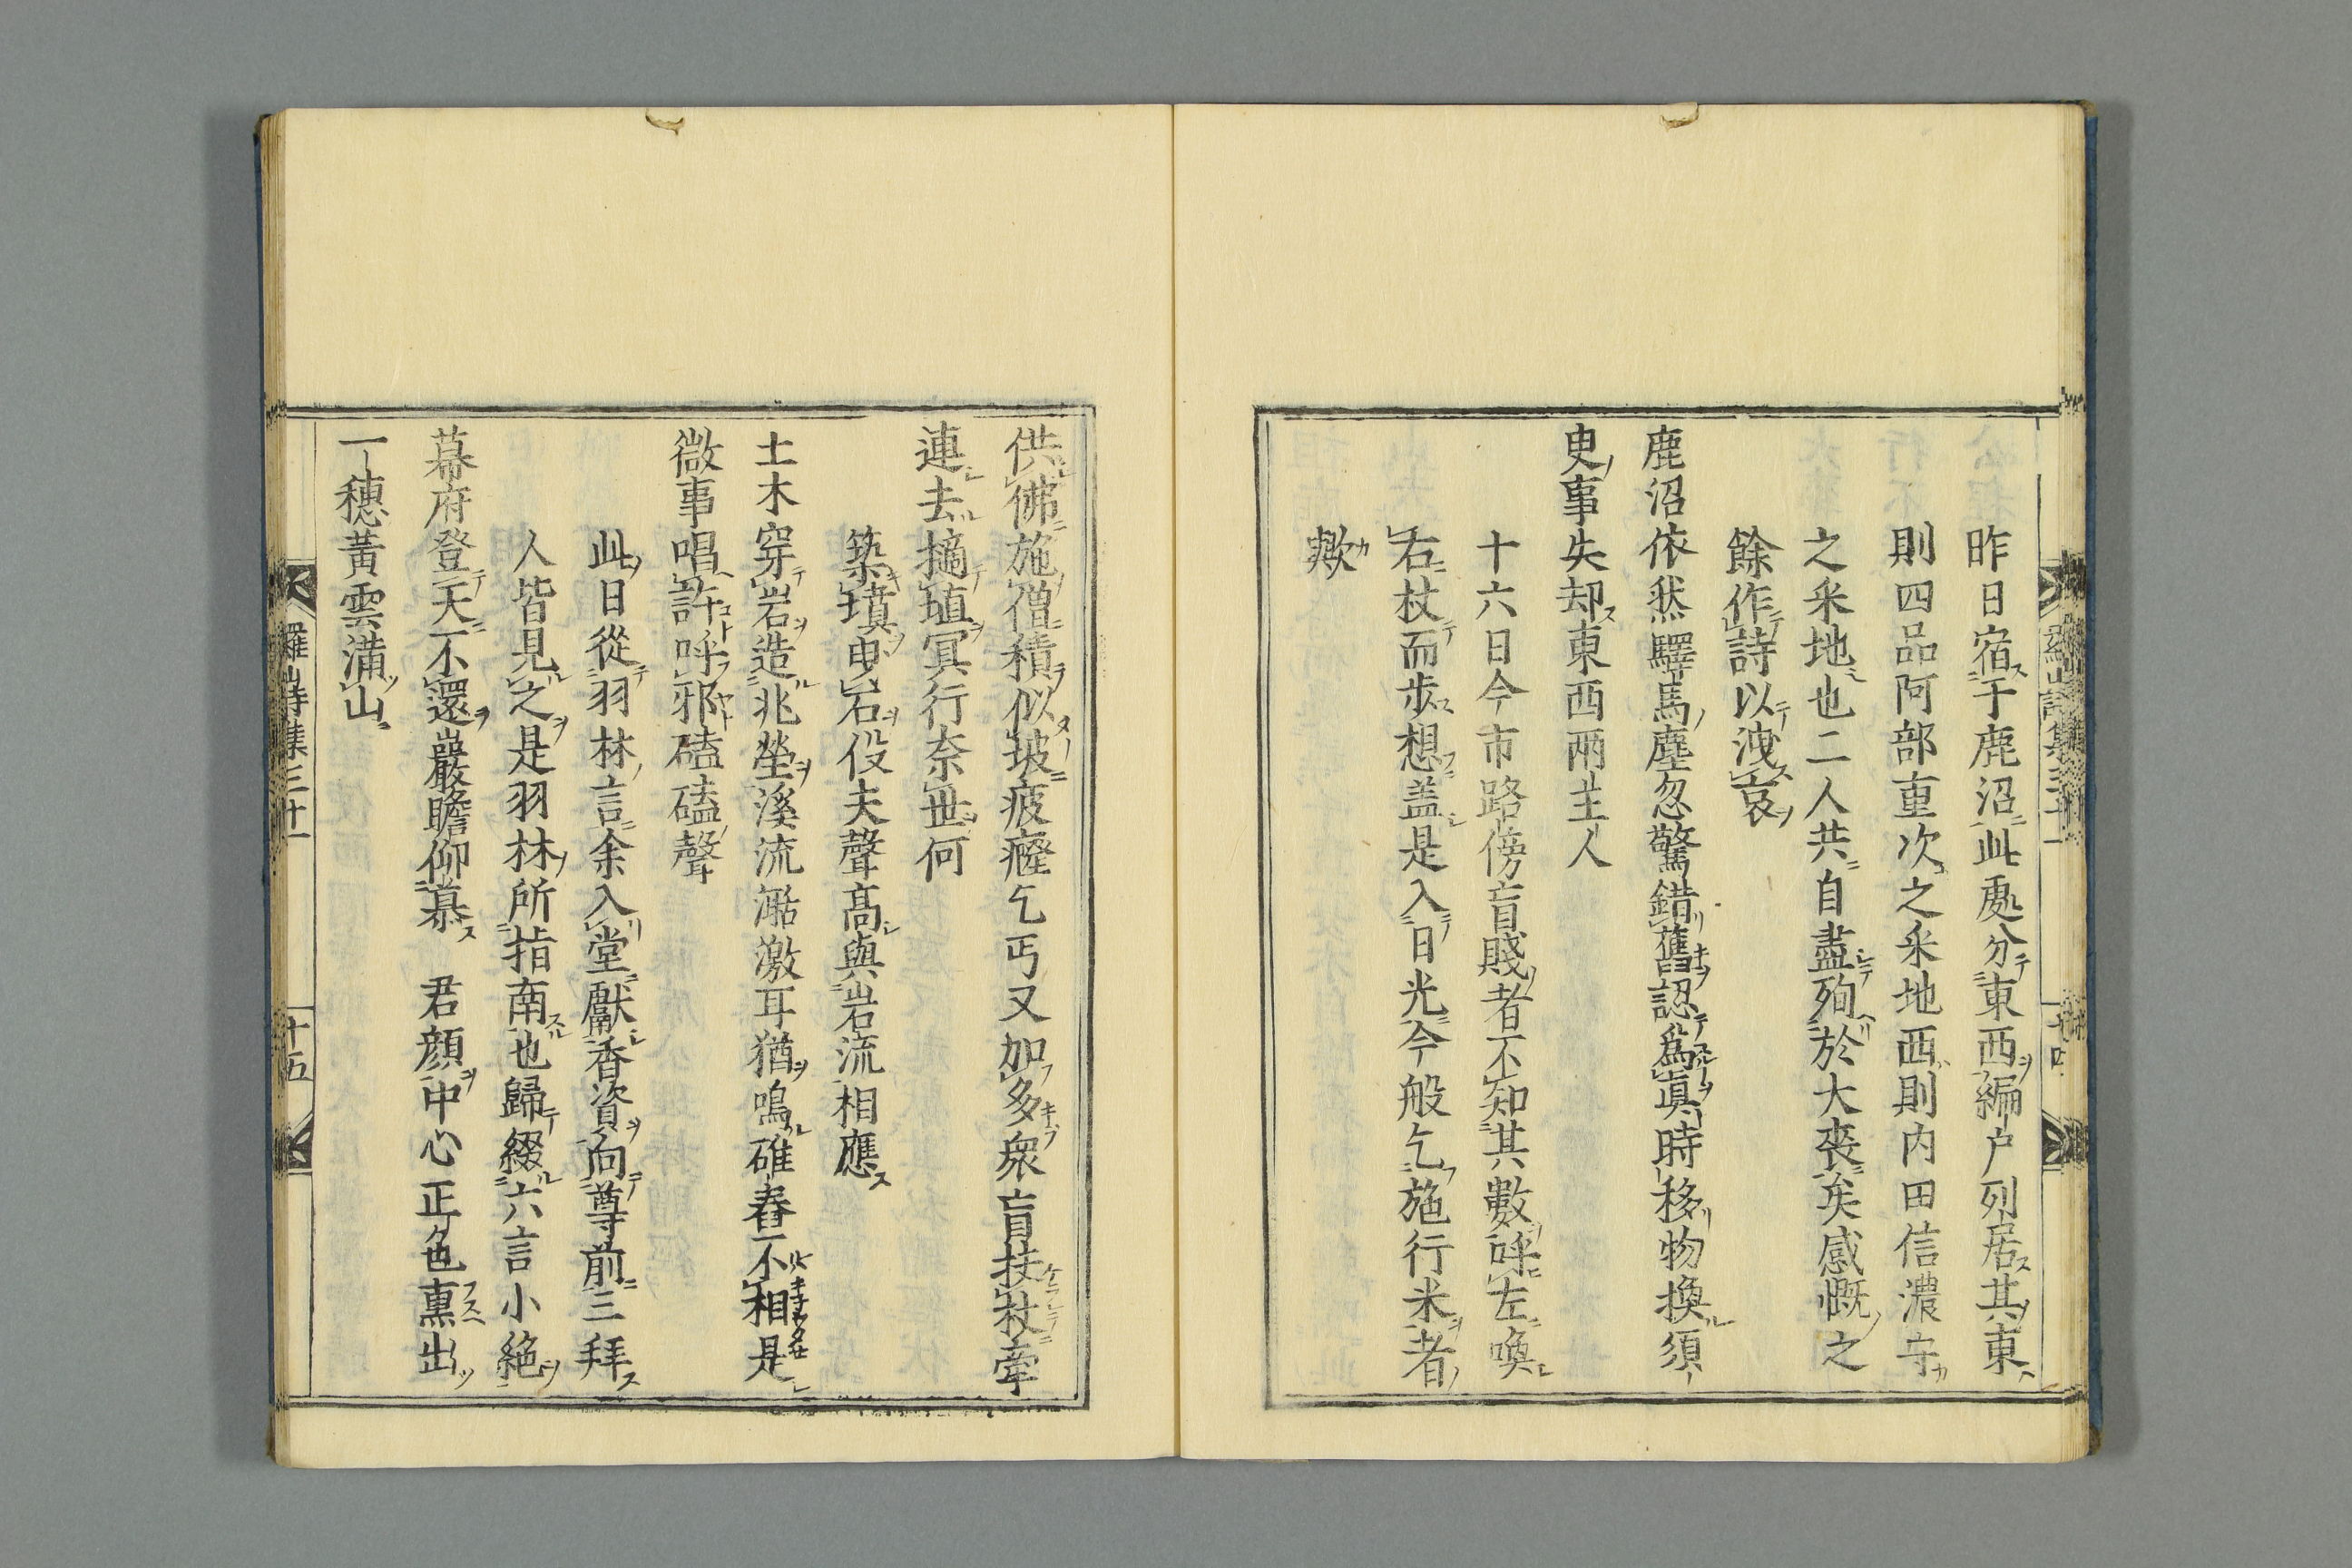 昨日宿于鹿沼此處分東西編戸列居其東
則四品阿部重次之采地西則内田信濃守
之采地也二人共自盡殉於大喪矣感慨之
餘作詩以洩哀
鹿沼依然驛馬塵忽驚錯舊認爲眞時移物換須
臾事失却東西兩主人
十六日今市路傍盲賤者不知其數呼左喚
右杖而歩想盖是入日光今般乞施行米者
歟
供佛施僧積似坡疲癃乞丐又加多衆盲扶杖牽
連去擿埴冥行奈世何
築墳曳石役夫聲高與岩流相應
土木穿岩造兆塋溪流澔激耳猶鳴碓舂不相是
微事唱許呼邪磕磕聲
此日從羽林言余入堂獻香資向尊前三拜
人皆見之是羽林所指南也歸綴六言小絶
幕府登天不還巖瞻仰慕　君顔中心正色熏出
一穗黃雲滿山
羅山詩集三十一
十五